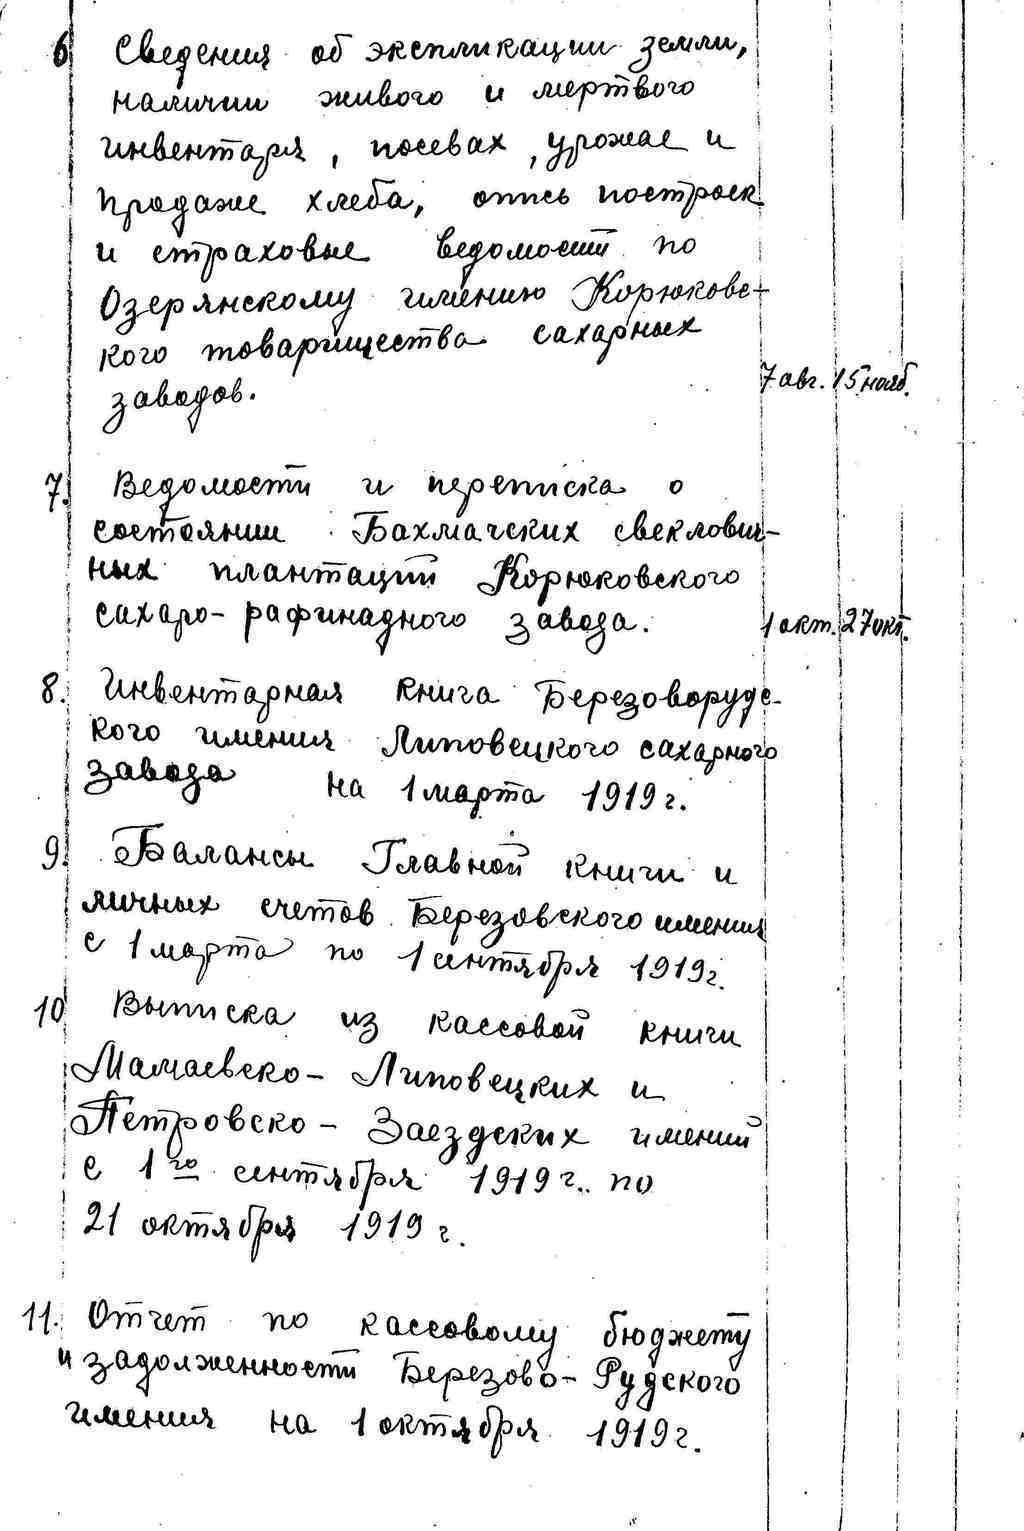 6 Сведения об экспликации земли,
наличии живого и мертвого
инвентаря, посевах, урожае и
продаже хлеба, опись построек
и страховые ведомости по
Озерянскому имению Корюковс-
кого товарищества сахарных
заводов. 7 авг. 15 нояб.
7. Ведомости и переписка о
состоянии Бахмачских свеклович-
ных плантаций Корюковского
сахаро-рафинадного завода. 1 окт. 27 окт.
8. Инвентарная книга Березоворудс-
кого имения Липовецкого сахарного
завода на 1 марта 1919 г.
9. Балансы Главной книги и
личных счетов Березовского имения
с 1 марта по 1 сентября 1919 г.
10 Выписка из кассовой книги
Мамаевско-Липовецких и
Петровско-Заездских имений
с 1го сентября 1919 г. по
21 октября 1919 г.
11. Отчет по кассовому бюджету
и задолженности Березово-Рудского
имения на 1 октября 1919 г.